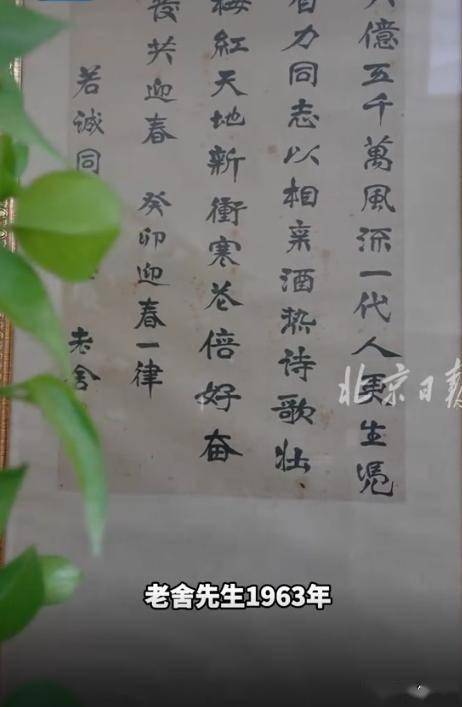 億五千萬風流一代人更生凴
自力同志以相亲酒热詩歌壮
梅紅天地新衝寒花倍好奋
共迎春 癸卯迎春一律
若誠同 老舍
北京日報
老舍先生1963年